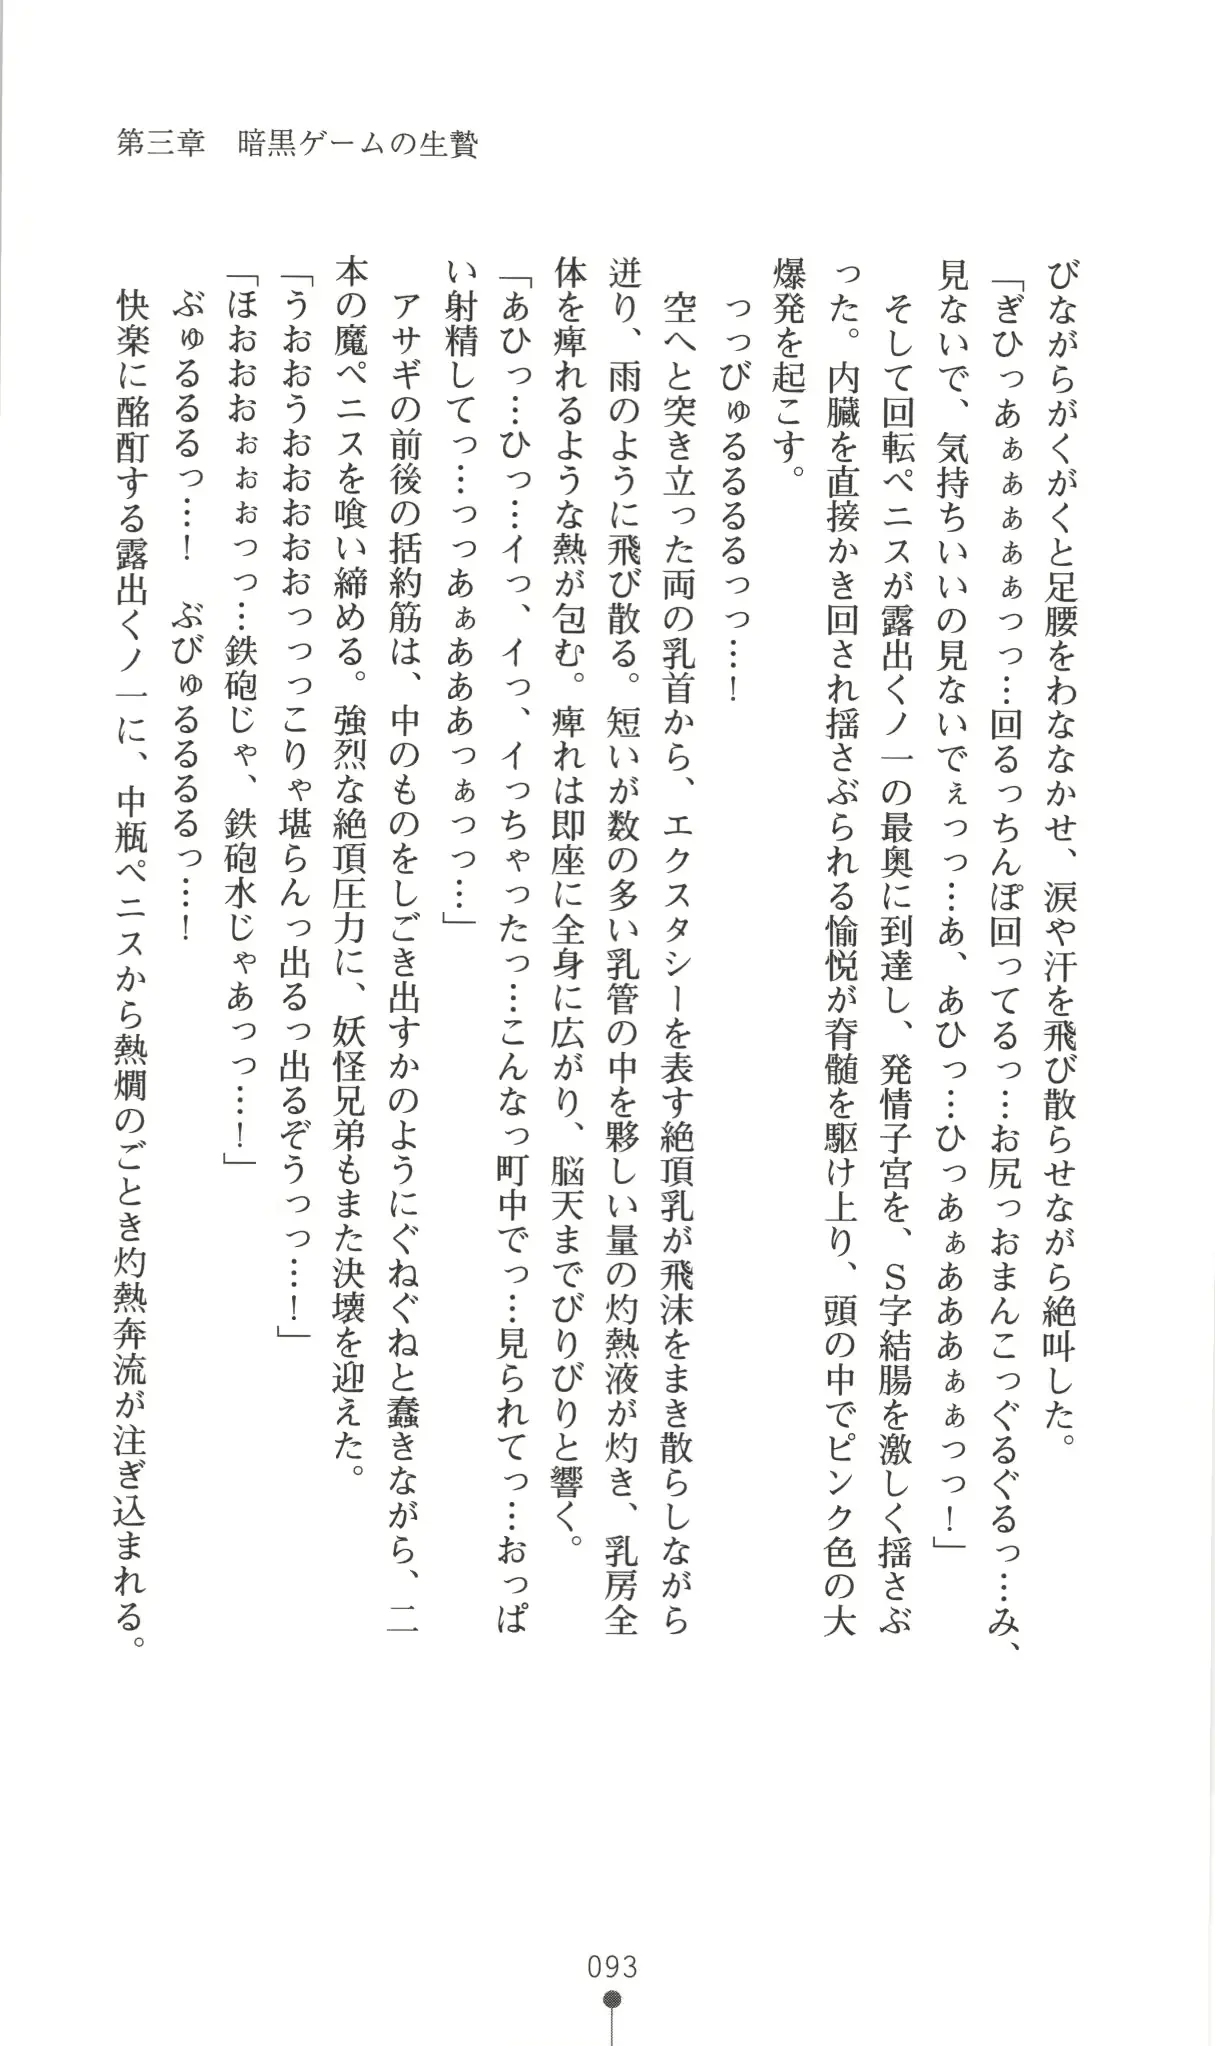 第三章　暗黒ゲームの生贄
びながらがくがくと足腰をわななかせ、涙や汗を飛び散らせながら絶叫した。
「ぎひっあぁぁぁぁぁっっ…回るっちんぽ回ってるっ…お尻っおまんこっぐるぐるっ…み、
見ないで、気持ちいいの見ないでぇっっ…あ、あひっ…ひっあぁあああぁぁっっ！」
　そして回転ペニスが露出くノ一の最奥に到達し、発情子宮を、Ｓ字結腸を激しく揺さぶ
った。内臓を直接かき回され揺さぶられる愉悦が脊髄を駆け上り、頭の中でピンク色の大
爆発を起こす。
　っっびゅるるるるっっ…！
　空へと突き立った両の乳首から、エクスタシーを表す絶頂乳が飛沫をまき散らしながら
迸り、雨のように飛び散る。短いが数の多い乳管の中を夥しい量の灼熱液が灼き、乳房全
体を痺れるような熱が包む。痺れは即座に全身に広がり、脳天までびりびりと響く。
「あひっ…ひっ…イっ、イっ、イっちゃったっ…こんなっ町中でっ…見られてっ…おっぱ
い射精してっ…っっあぁあああっぁっっ…」
　アサギの前後の括約筋は、中のものをしごき出すかのようにぐねぐねと蠢きながら、二
本の魔ペニスを喰い締める。強烈な絶頂圧力に、妖怪兄弟もまた決壊を迎えた。
「うおおうおおおおっっっこりゃ堪らんっ出るっ出るぞうっっ…！」
「ほおおおぉぉぉっっ…鉄砲じゃ、鉄砲水じゃあっっ…！」
　ぶゅるるるっ…！　ぶびゅるるるるっ…！
　快楽に酩酊する露出くノ一に、中瓶ペニスから熱燗のごとき灼熱奔流が注ぎ込まれる。
093